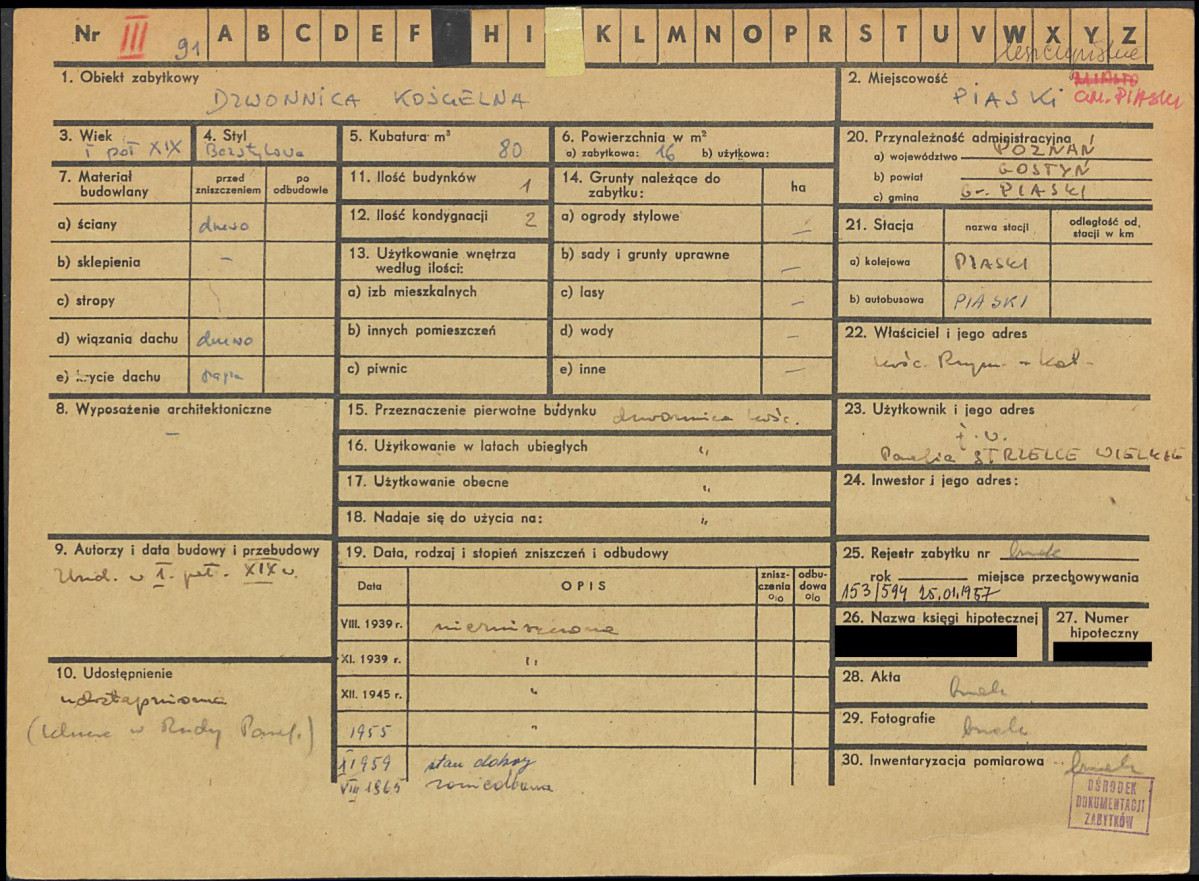 Nr III 91 A B C D E F H I K L M N O P R S T U V W X Y Z
leszczyńskie
1. Obiekt zabytkowy
DZWONNICA KOŚCIELNA
2. Miejscowość
MIASTO
PIASKI GM. PIASKI
3. Wiek
I poł XIX
4. Styl
Bezstylowa
5. Kubatura m³
80
6. Powierzchnia w m²
a) zabytkowa: 16 b) użytkowa:
20. Przynależność administracyjna
a) województwo POZNAŃ
b) powiat GOSTYŃ
c) gmina Gr. PIASKI
7. Materiał budowlany
przed zniszczeniem
po odbudowie
a) ściany drewo
b) sklepienia –
c) stropy
d) wiązania dachu drewo
e) krycie dachu papa
11. Ilość budynków 1
12. Ilość kondygnacji 2
13. Użytkowanie wnętrza
według ilości:
a) izb mieszkalnych
b) innych pomieszczeń
c) piwnic
14. Grunty należące do
zabytku:
ha
a) ogrody stylowe –
b) sady i grunty uprawne –
c) lasy –
d) wody –
e) inne –
21. Stacja
nazwa stacji
odległość od.
stacji w km
a) kolejowa PIASKI
b) autobusowa PIASKI
22. Właściciel i jego adres
kośc. Rzym. - Kat-
8. Wyposażenie architektoniczne
–
15. Przeznaczenie pierwotne budynku dzwonnica kośc.
16. Użytkowanie w latach ubiegłych "
17. Użytkowanie obecne "
18. Nadaje się do użycia na: "
23. Użytkownik i jego adres
j. w.
Parafia STRZELCE WIELKIE
24. Inwestor i jego adres:
9. Autorzy i data budowy i przebudowy
Zbud. w I. poł. XIX w.
19. Data, rodzaj i stopień zniszczeń i odbudowy
Data
OPIS
znisz-
czenia
%
odbu-
dowa
%
VIII. 1939 r. niezniszczona
XI. 1939 r. "
XII. 1945 r. "
1955 "
I 1959 stan dobry
VIII 1965 zaniedbana
25. Rejestr zabytku nr brak
rok miejsce przechowywania
153/594 25.01.1957
26. Nazwa księgi hipotecznej
27. Numer
hipoteczny
10. Udostępnienie
udostępniona
(klucze w Rady Paraf.)
28. Akta
brak
29. Fotografie
brak
30. Inwentaryzacja pomiarowa brak
OŚRODEK
DOKUMENTACJI
ZABYTKÓW